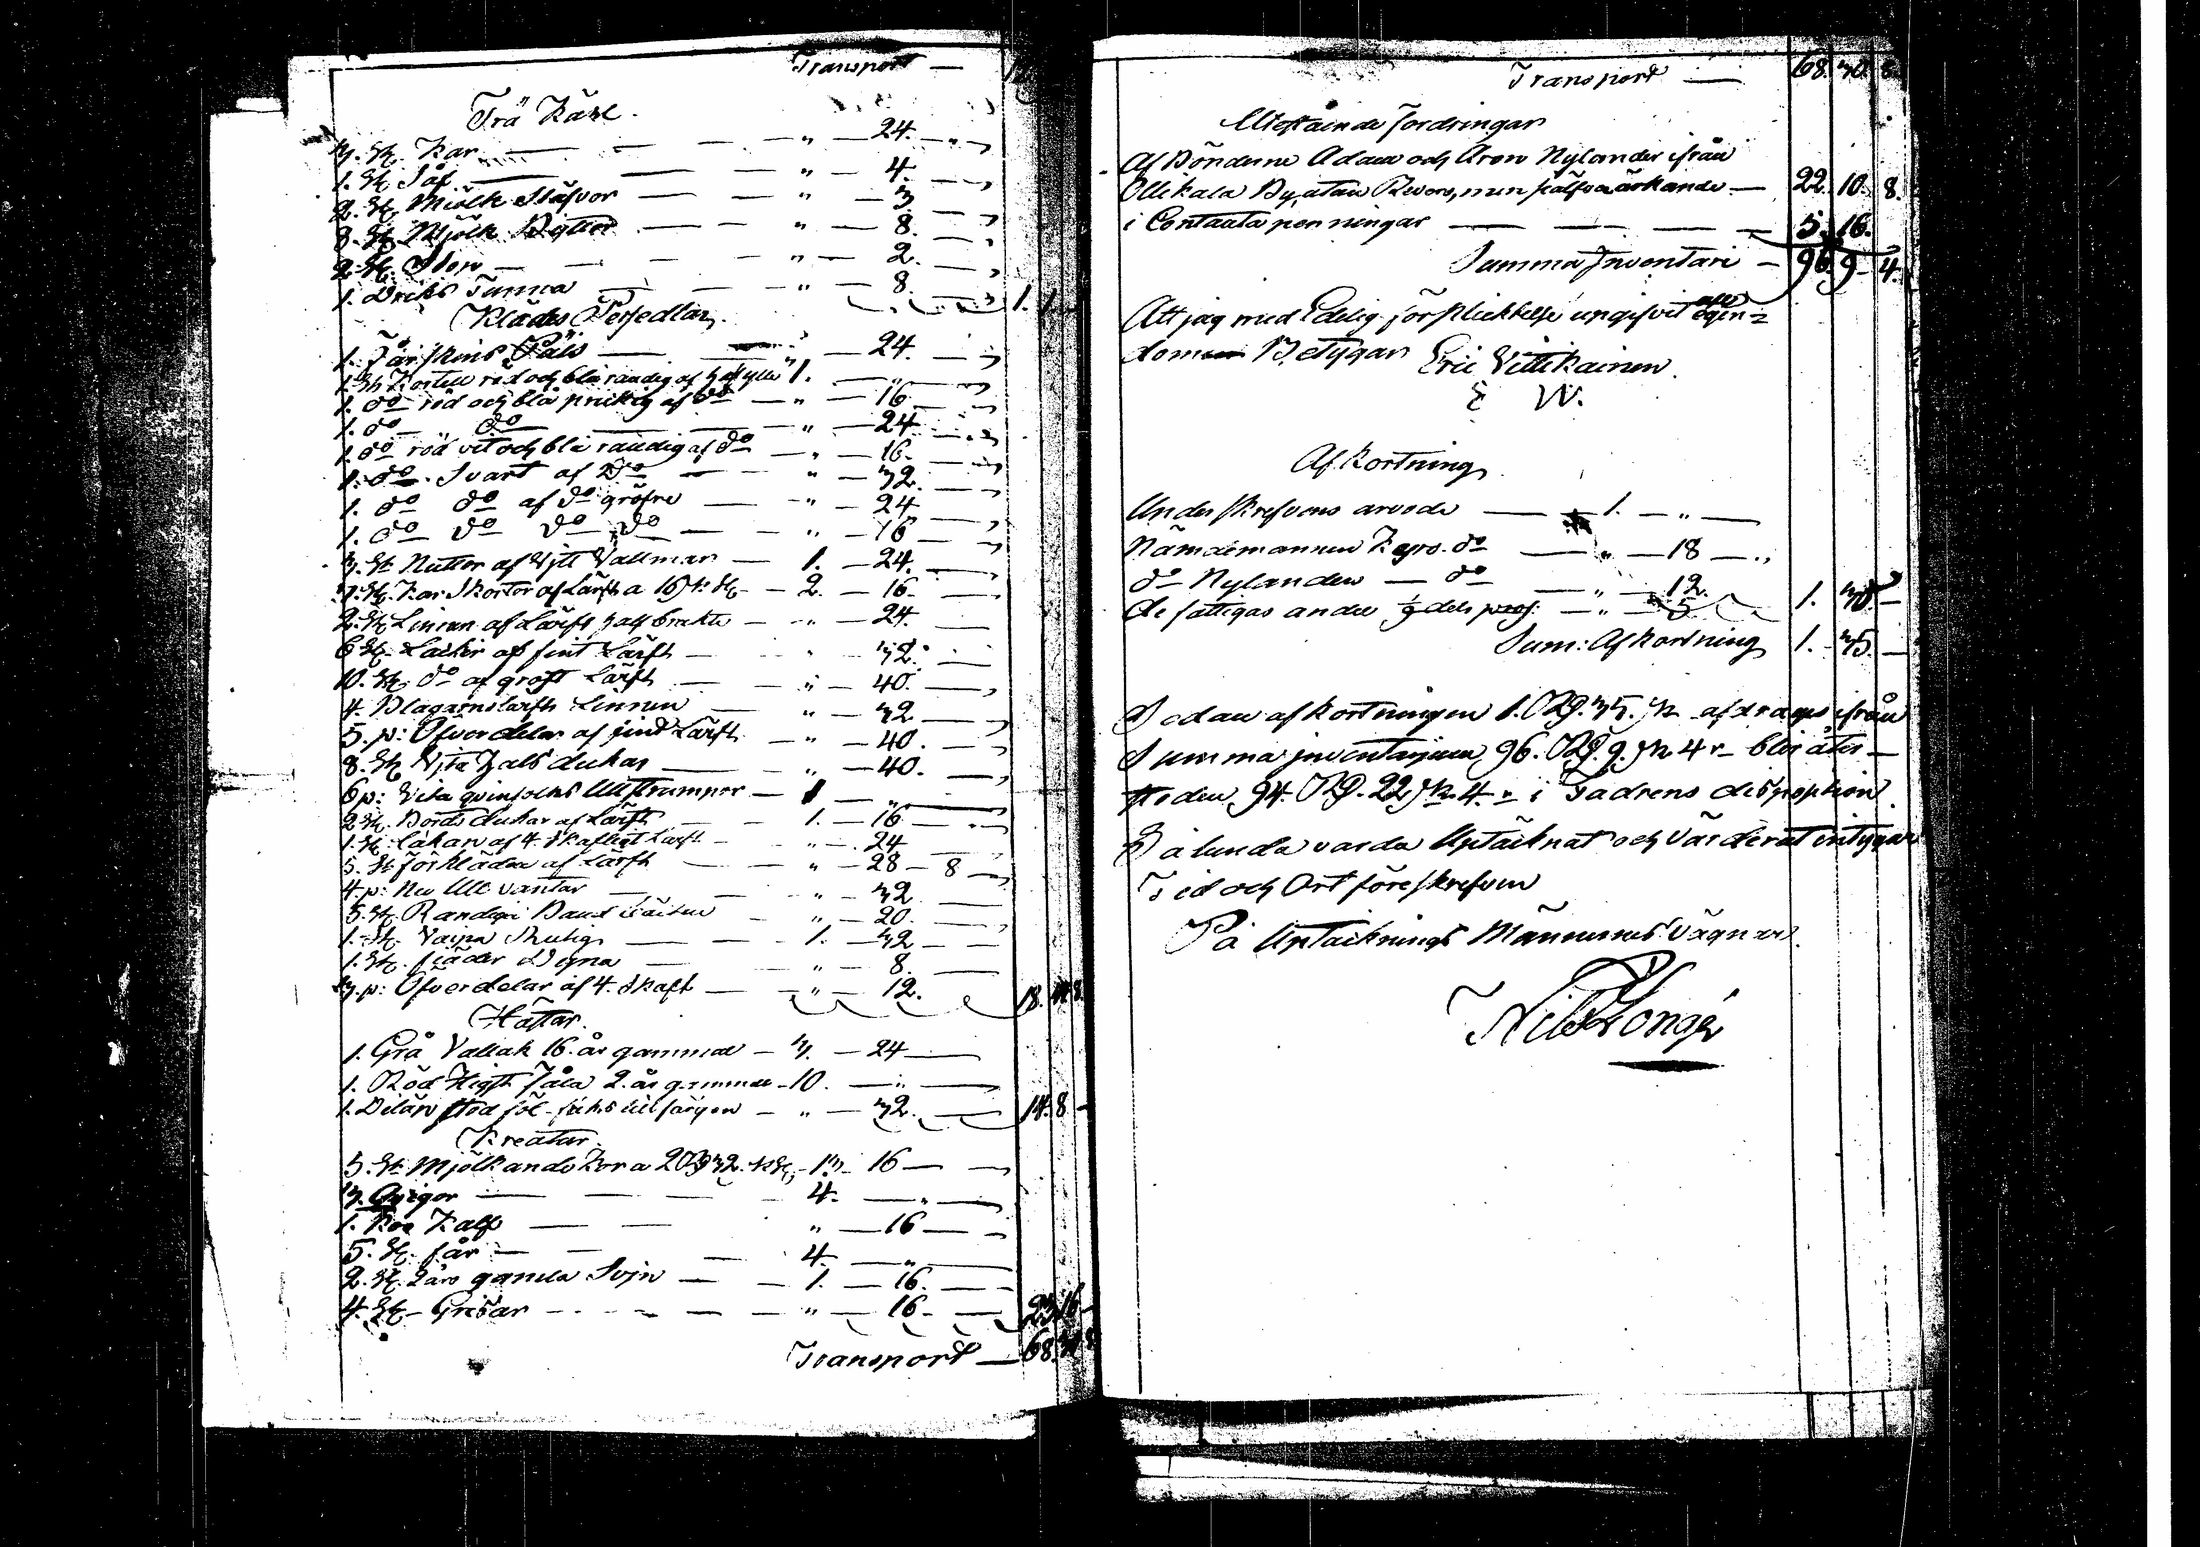 Transport —
Trä Kärl.
3. St. Kar — — — " — 24. — "
1. St. Såf — — — " — 4. —
2. St. Miölk Stäfvor — — " — 3 —
8. St. Mjölk Byttor — — " — 8. —
2. St. Stop — — — " — 2. —
1. Driks Tunna — — " — 8. — 1. 1.
Kläder Persedlar.
1. Får skins Päls — — 24. —
1. St. Kortell röd och blå randig af half ylle " 1. — " —
1. do röd och blå prickig af do — " — 16 —
1. do — do — — " — 24 —
1. do röd vit och blå randig af do — " — 16. —
1. do . Svart af do — " — 32. —
1. do do af do gröfre — " — 24 —
1. do do do do — " — 16 —
3. St. Nättor af Vjtt Vallmar — 1. — 24. —
7. St. Kar Skortor af Lärft a 16 sk. St. — 2. — 16. —
2. St. Linnen af Lärft half brukte — " — 24. —
6 St. af fint Lärft — " — 32. —
10. St. do af groft Lärft — " — 40. —
4. Blagarnslärfts Linnen — " — 32 —
5. p: Öfverdelar af fint Lärft — " — 40. —
8. St. Vjta Hals dukar — " — 40. —
6 p: Vita qvinfolks Ullstrumpor — 1 — " —
2. St. Bords dukar af Lärft — 1. — 16 —
1. St. lakan af 4. skaftigt Lärft — " — 24 —
5. St. förkläden af Lärft — " — 28 — 8 —
4 p: Ull vantar — " — 32 —
5. St. Randiga Band — " — 20. —
1. St. — 1. — 32 —
1. St. fjäder — " — 8. —
3. p: Öfverdelar af 4. skaft — " — 12. 18. 8.
Hästar.
1. Grå Vallak 16. år gammal — 3. — 24 —
1. Röd Higst fåla 2. år gammal — 10. — " —
1. stod föl — till färgen — " — 32. — 14. 8 —
Kreatur.
5. St. Mjölkande Kor a 2 Rd 32. sk St. — 13 — 16 —
3. Qvigor — — — 4. — " —
1. Koo Kalf — — " — 16 —
5. St. får — — 4. — " —
2. St. 2 års gamla Svjn — 1. — 16. —
4. St. Grisar — — — " — 16. — 23. 16 —
Transport — 68. 30. 8

Transport — 68. 30. 8.
Utestående fordringar
Af Bönderne Adam och Aron Nylander ifrån
Ollikala By, utan Revers, men sälfva ärkände — 22. 10. 8.
i Contanta penningar — — — 5. 16.
Summa Inventari — 96. 9. 4.
Att jag med Edelig förplicktelse ungifvit all egen=
domen Betygar Eric Vittikainen.
E W.
Afkortning
Underskrefvens arvode — 1. — " —
Nämdemannen do — " — 18 — "
do Nylander — do — " — 12.
de fattigas andel — " — 5 1. 35 —
Sum: Afkortning 1. 35. —
Sedan afkortningen 1. RD. 35. sk afdrages ifrån
Summa jnventarjum 96. RD. 9. sk. 4 r — blir åter —
stoden 94. RD. 22 sk. 4. r i Fadrens desposition.
Sålunda varda Uptäcknat och Värderat intygar
Tid och Ort föreskrefven
På Uptäcknings Männernes Vägnar.